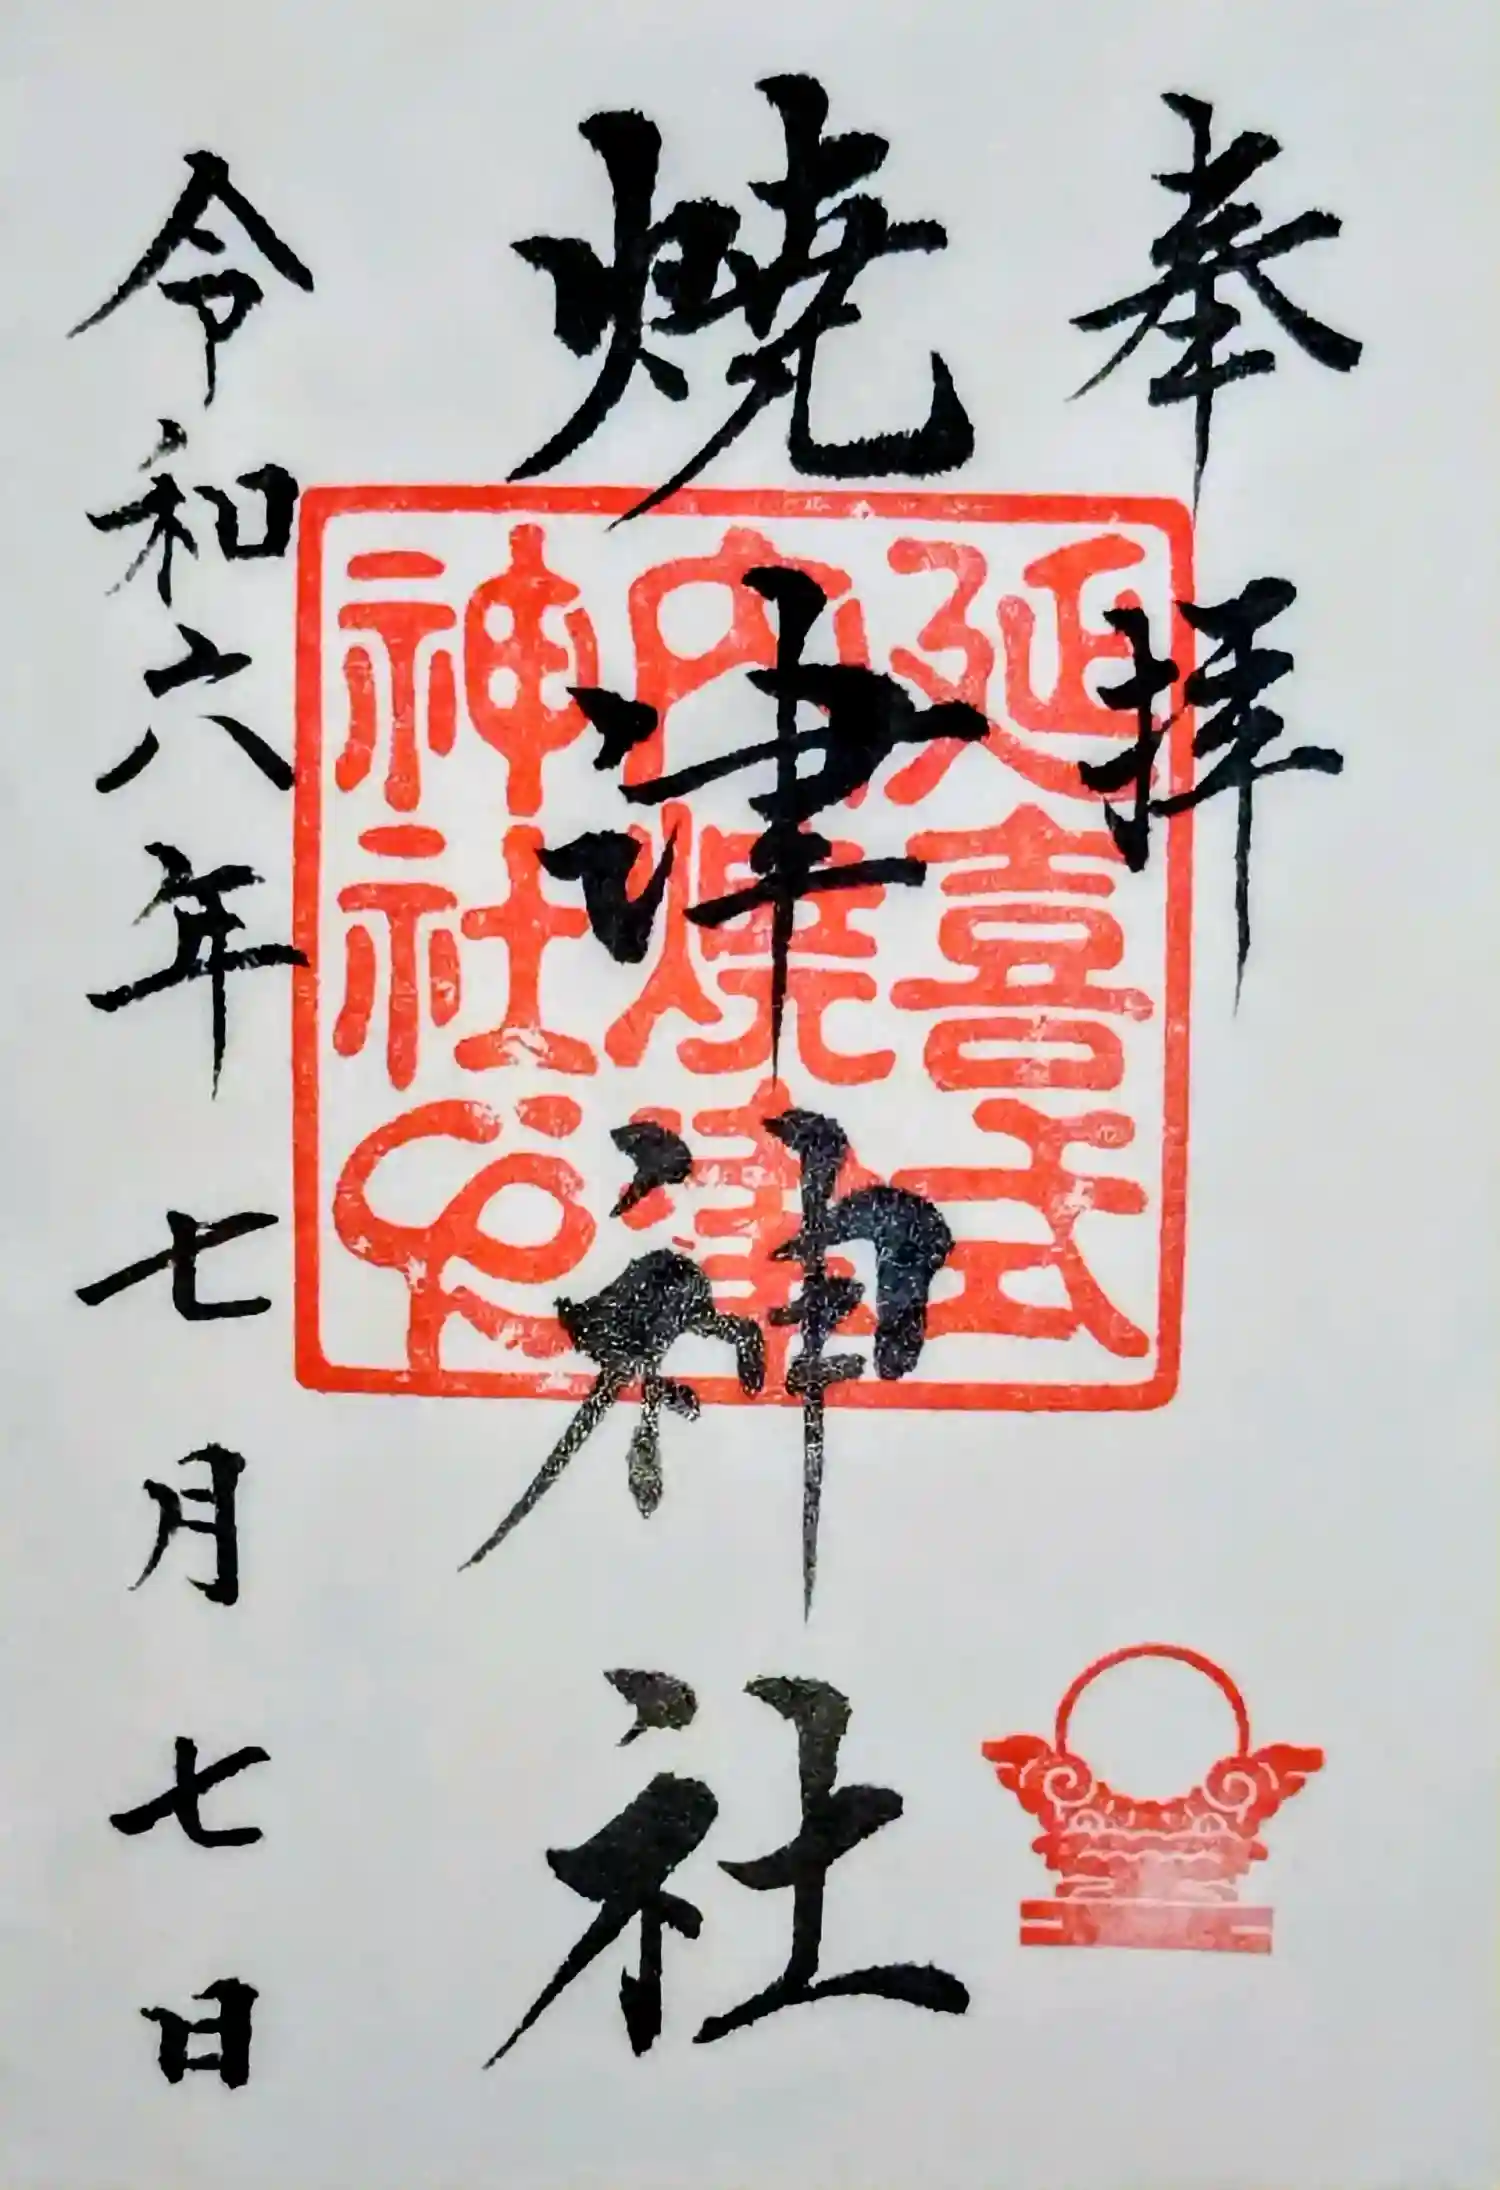 奉拝
焼津神社
令和六年七月七日
延喜式
内焼津
神社印